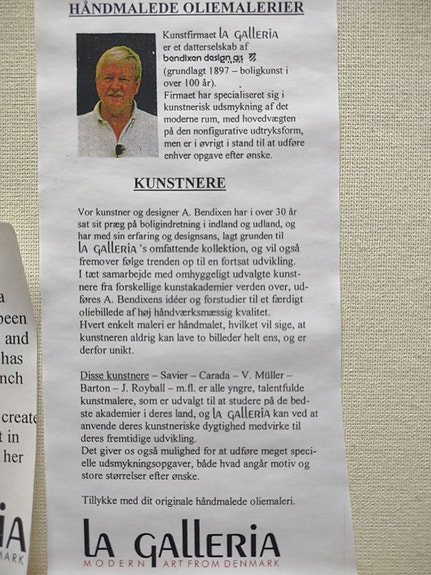 HÅNDMALEDE OLIEMALERIER
Kunstfirmaet LA GALLERIA
er et datterselskab af
bendixen design as
(grundlagt 1897 – boligkunst i
over 100 år).
Firmaet har specialiseret sig i
kunstnerisk udsmykning af det
moderne rum, med hovedvægten
på den nonfigurative udtryksform,
men er i øvrigt i stand til at udføre
enhver opgave efter ønske.
KUNSTNERE
Vor kunstner og designer A. Bendixen har i over 30 år
sat sit præg på boligindretning i indland og udland, og
har med sin erfaring og designsans, lagt grunden til
LA GALLERIA 's omfattende kollektion, og vil også
fremover følge trenden op til en fortsat udvikling.
I tæt samarbejde med omhyggeligt udvalgte kunst-
nere fra forskellige kunstakademier verden over, ud-
føres A. Bendixens idéer og forstudier til et færdigt
oliebillede af høj håndværksmæssig kvalitet.
Hvert enkelt maleri er håndmalet, hvilket vil sige, at
kunstneren aldrig kan lave to billeder helt ens, og er
derfor unikt.
Disse kunstnere – Savier – Carada – V. Müller –
Barton – J. Royball – m.fl. er alle yngre, talentfulde
kunstmalere, som er udvalgt til at studere på de bed-
ste akademier i deres land, og LA GALLERIA kan ved at
anvende deres kunstneriske dygtighed medvirke til
deres fremtidige udvikling.
Det giver os også mulighed for at udføre meget speci-
elle udsmykningsopgaver, både hvad angår motiv og
store størrelser efter ønske.
Tillykke med dit originale håndmalede oliemaleri.
LA GALLERIA
MODERN ART FROM DENMARK
a
been
and
has
nch
create
t in
her
iA
MARK